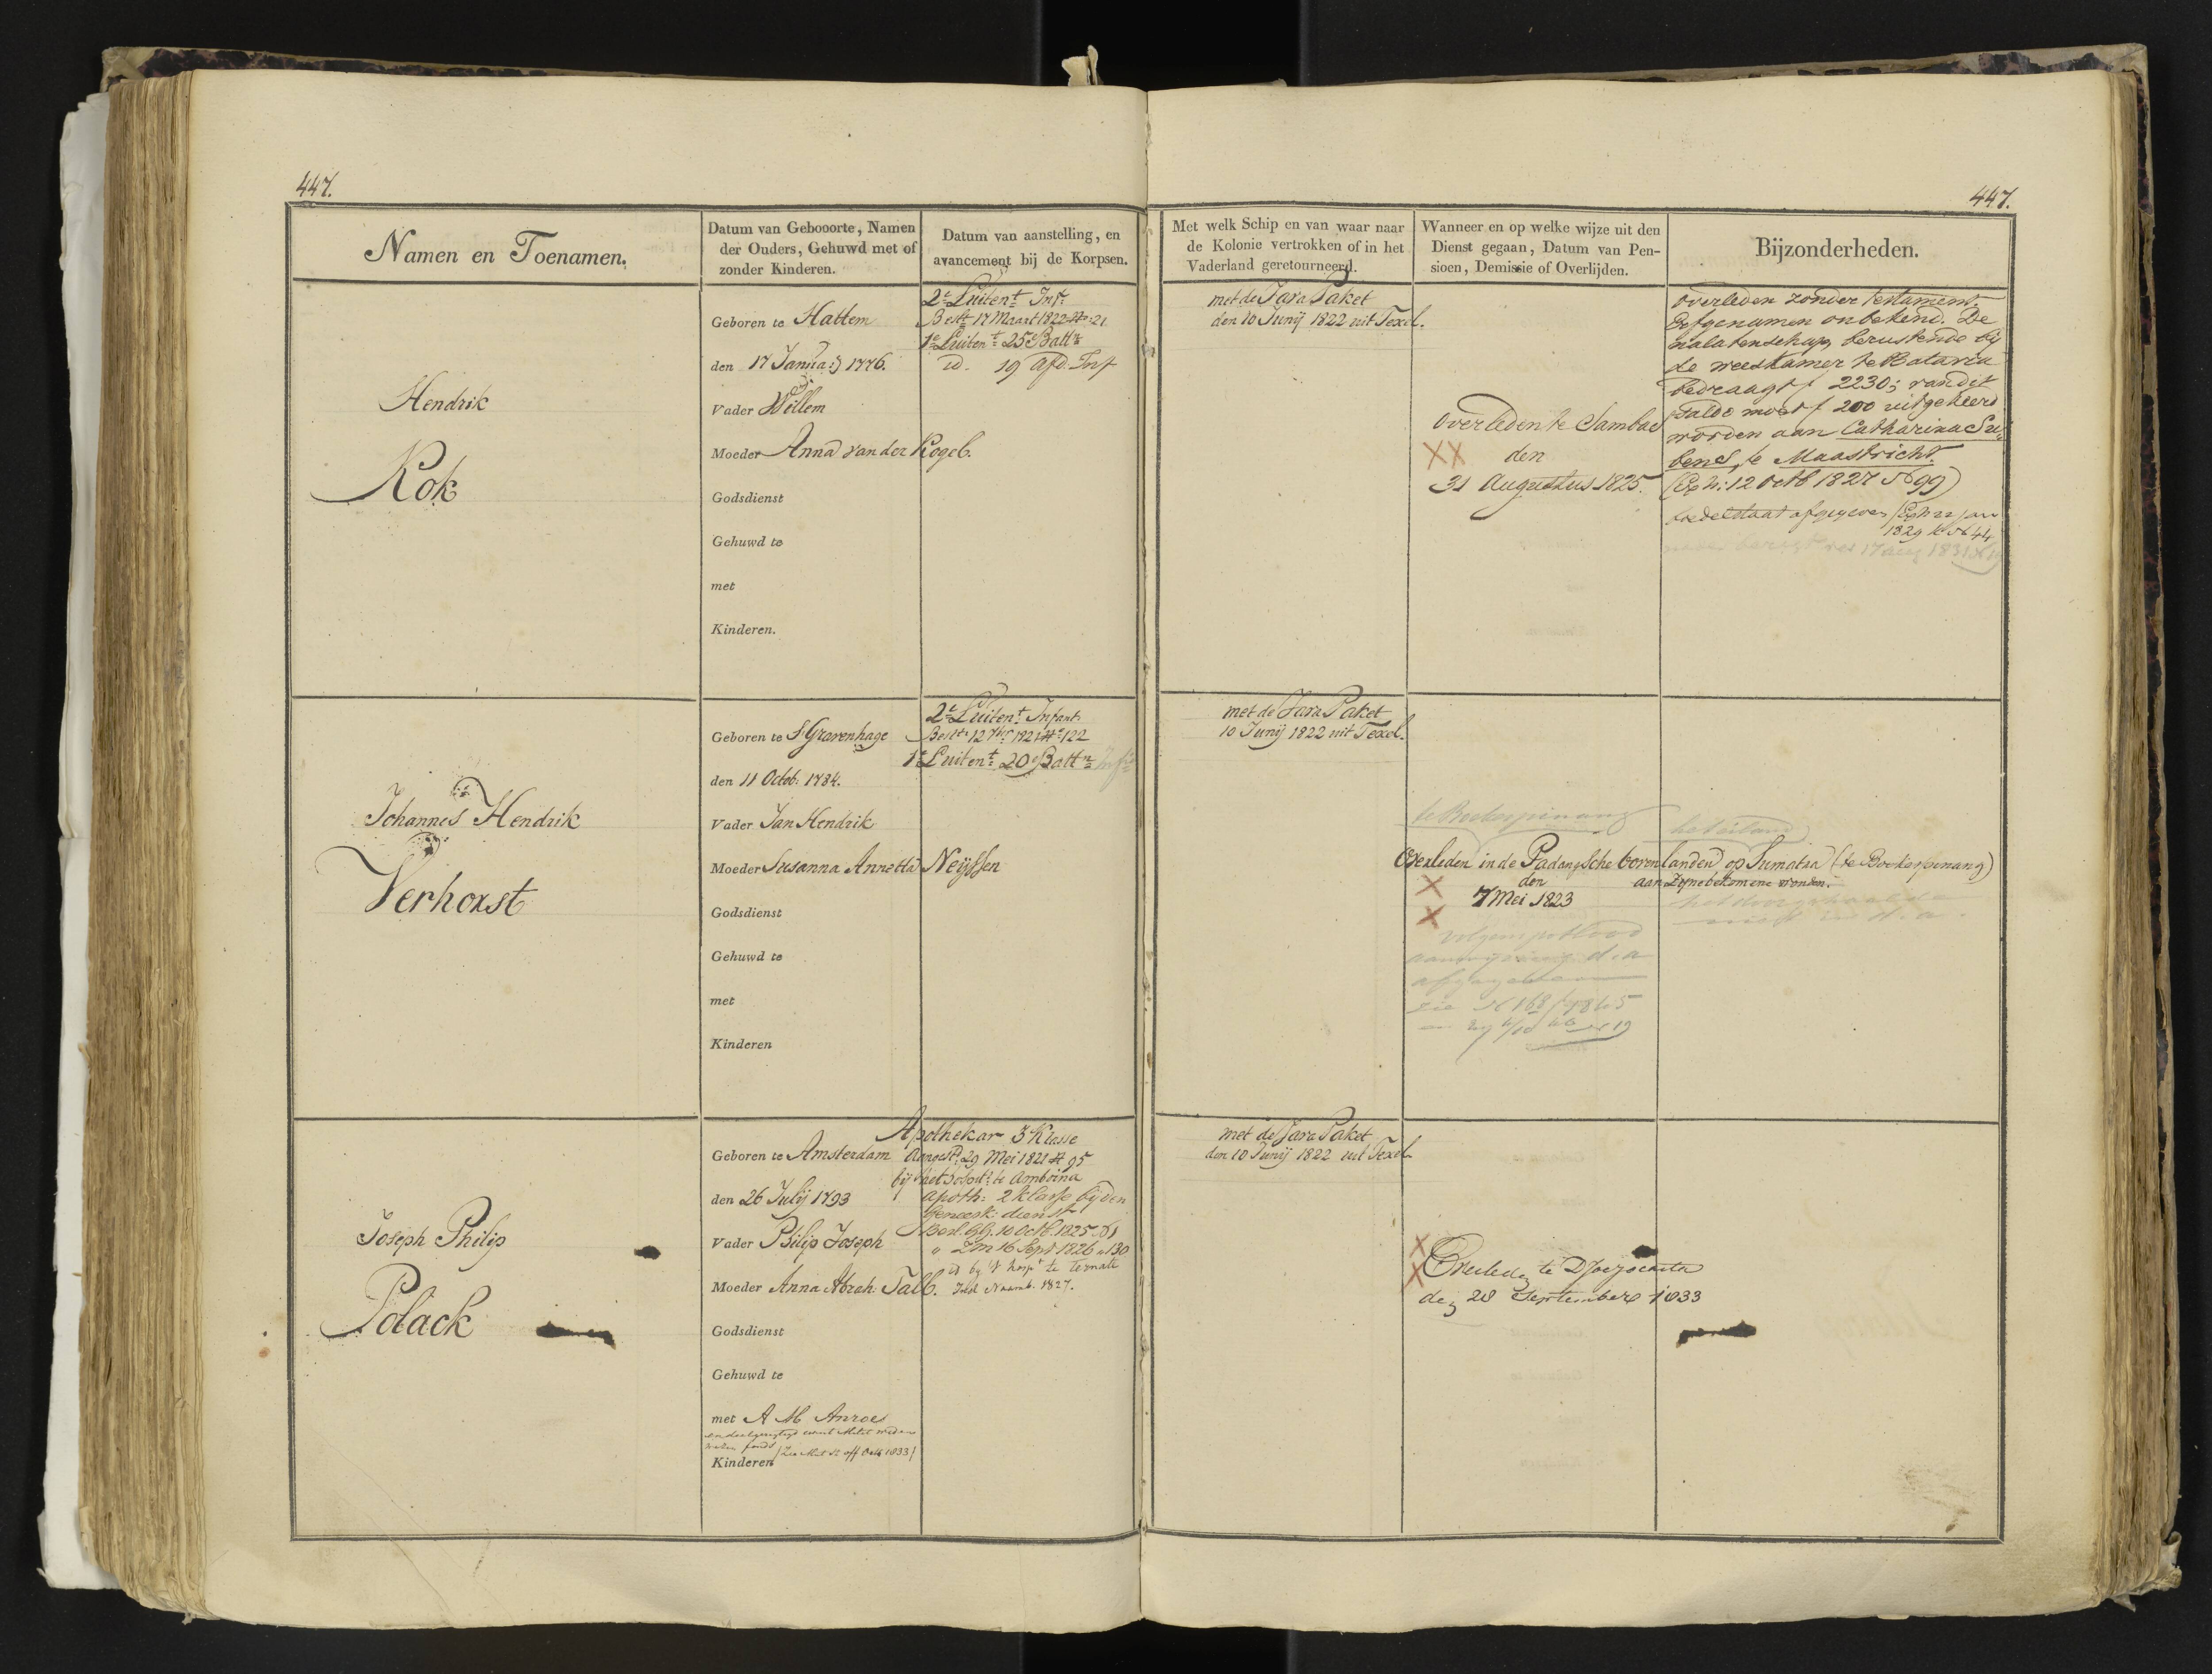 447.
447.
Namen en Toenamen.
Datum van Gebooorte, Namen
der Ouders, Gehuwd met of
zonder Kinderen.
Datum van aanstelling, en
avancement bij de Korpsen.
Met welk Schip en van waar naar
de Kolonie vertrokken of in het
Vaderland geretourneerd.
Wanneer en op welke wijze uit den
Dienst gegaan, Datum van Pen-
sioen, Demissie of Overlijden.
Bijzonderheden.
Hendrik
Kok
Geboren te Hattem
den 17 Janua:ij 1776.
Vader Willem
Moeder Anna van der Kogel.
Godsdienst
Gehuwd te
met
Kinderen.
2e Luitent Inf:
Beslt 17 Maart 1822 No 21
1e Luitent 25e Battn
id. 19 Afd. Inf
met de Java Paket
den 10 Junij 1822 uit Texel.
Overleden te Sambas
XX den
31 Augustus 1825.
Overleden zonder testament.
Erfgenamen onbekend. De
nalatenschap berustende bij
de weeskamer te Batavia
bedraagt f 2230; van dit
saldo moet f 200 uitgekeerd
worden aan Catharina Su-
bens, te Maastricht.
(Exh: 12 Octb 1827 No 99)
boedelstaat afgegeven (Exh 22 jan
1829 No 44
17 aug 1831
Johannes Hendrik
Verhorst
Geboren te S'Gravenhage
den 11 Octob: 1784.
Vader Jan Hendrik
Moeder Susanna Annetta Neijssen
Godsdienst
Gehuwd te
met
Kinderen
2e Luitent Infant:
Beslt 12 1821 No 122
1e Luitent 20e Battn Infie
met de Java Paket
10 Junij 1822 uit Texel.
te Boekerpinang
het eiland
Overleden in de Padangsche bovenlanden op Sumatra (te Boekerpinang)
X den aan zijne bekomene wonden.
7 Mei 1823
X
het doorgehaalde
niet
volgens potlood
aanwijzing d.a
afgegeven
zie
Joseph Philip
Polack
Geboren te Amsterdam
den 26 Julij 1793
Vader Philip Joseph
Moeder Anna Abrah: Talb.
Godsdienst
Gehuwd te
met A M Anroes
fonds (Zie Octb 1833)
Kinderen
Apothekar 3 Klasse
Aangest: 29 Mei 1821 No 95
bij het hospt: te Amboina
apoth: 2 Klasse bij den
Geneesk: dienst
Besl. GG. 10 Octb. 1825 No 1
" 16 Sept 1826 n 130
id bij 't hospt te Ternate
1827.
met de Java Paket
den 10 Junij 1822 uit Texel
X
X
Overleden te Djocjocarta
den 28 September 1833